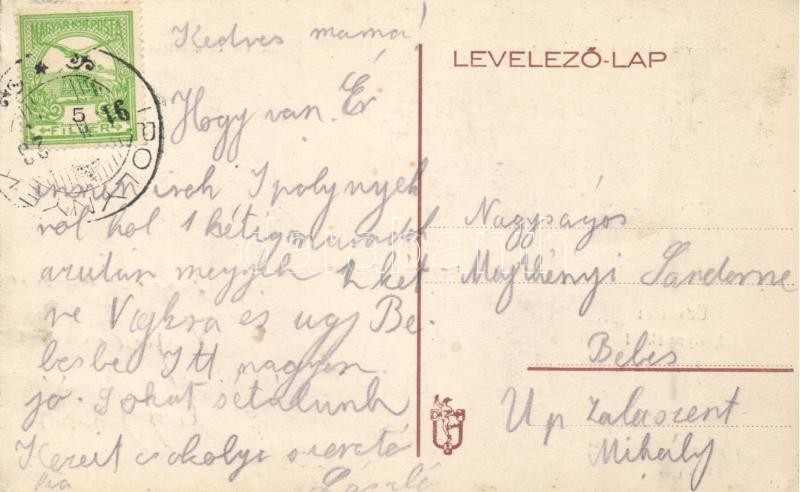 MAGYAR KIR. POSTA
5
FILLÉR
IPOLYNYÉK
16
Kedves mama!
Hogy van. Én
innen irok Ipolynyék
ról hol 1 hétig maradok
azután megyek 1 het
re Vajkra es ugy Be
besbe Itt nagyon
jó. Sokat sétálunk
Kezeit csokolja szerető
fia László
LEVELEZŐ-LAP
Nagyságos
Majthényi Sandorne
Bebes
Up Zalaszent
Mihály
darabanth